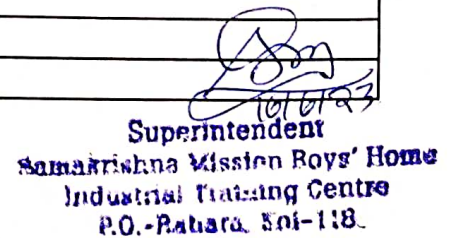 16/6/23
Superintendent
Ramakrishna Mission Boys' Home
Industrial Training Centre
P.O.-Rahara, Kol-118.